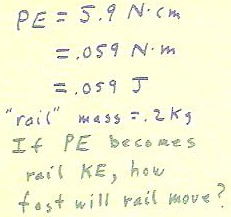 PE = 5.9 N·cm
= .059 N·m
= .059 J
"rail" mass = .2 Kg
If PE becomes
rail KE, how
fast will rail move?